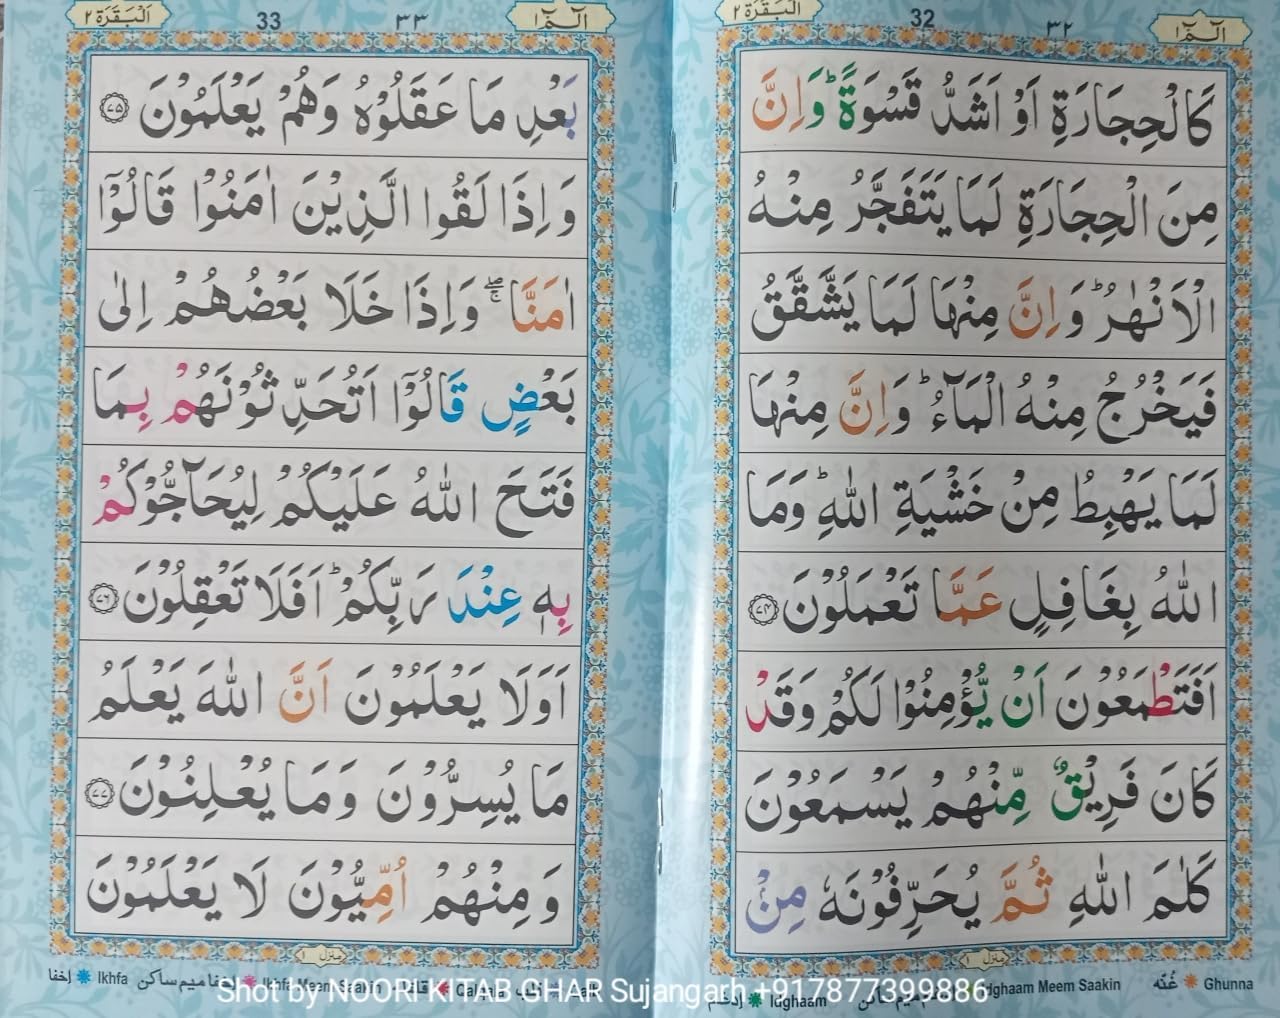 الٓمّٓ ١
٣٢
32
اَلْبَقَرَة ٢
كَالْحِجَارَةِ اَوْ اَشَدُّ قَسْوَةً ؕ وَاِنَّ
مِنَ الْحِجَارَةِ لَمَا يَتَفَجَّرُ مِنْهُ
الْاَنْهٰرُ ؕ وَاِنَّ مِنْهَا لَمَا يَشَّقَّقُ
فَيَخْرُجُ مِنْهُ الْمَآءُ ؕ وَاِنَّ مِنْهَا
لَمَا يَهْبِطُ مِنْ خَشْيَةِ اللّٰهِ ؕ وَمَا
اللّٰهُ بِغَافِلٍ عَمَّا تَعْمَلُوْنَ ٧٤
اَفَتَطْمَعُوْنَ اَنْ يُّؤْمِنُوْا لَكُمْ وَقَدْ
كَانَ فَرِيْقٌ مِّنْهُمْ يَسْمَعُوْنَ
كَلٰمَ اللّٰهِ ثُمَّ يُحَرِّفُوْنَهٗ مِنْۢ
منزل ١
غُنّه Ghunna
Idghaam Meem Saakin
إدغام Idghaam
الٓمّٓ ١
٣٣
33
اَلْبَقَرَة ٢
بَعْدِ مَا عَقَلُوْهُ وَهُمْ يَعْلَمُوْنَ ٧٥
وَاِذَا لَقُوا الَّذِيْنَ اٰمَنُوْا قَالُوْٓا
اٰمَنَّا ۖۚ وَاِذَا خَلَا بَعْضُهُمْ اِلٰى
بَعْضٍ قَالُوْٓا اَتُحَدِّثُوْنَهُمْ بِمَا
فَتَحَ اللّٰهُ عَلَيْكُمْ لِيُحَآجُّوْكُمْ
بِهٖ عِنْدَ رَبِّكُمْ ؕ اَفَلَا تَعْقِلُوْنَ ٧٦
اَوَلَا يَعْلَمُوْنَ اَنَّ اللّٰهَ يَعْلَمُ
مَا يُسِرُّوْنَ وَمَا يُعْلِنُوْنَ ٧٧
وَمِنْهُمْ اُمِّيُّوْنَ لَا يَعْلَمُوْنَ
منزل ١
إخفا Ikhfa إخفا ميم ساكن Ikhfa Meem Saakin
Shot by NOORI KITAB GHAR Sujangarh +917877399886